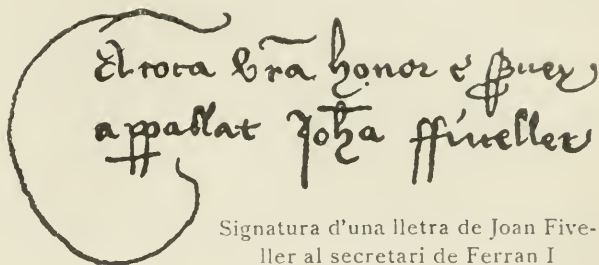 A tota vr̃a honor e
app̱allat Joh̃a ffiueller
Signatura d'una lletra de Joan Five-
ller al secretari de Ferran I